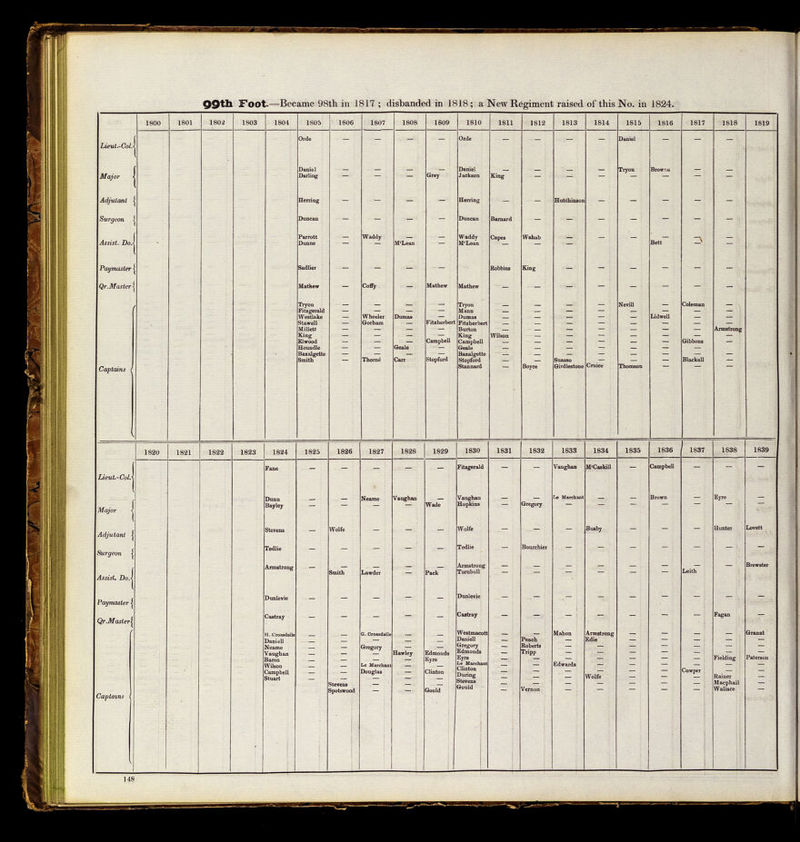 99th Foot.—Became 98th in 1817 ; disbanded in 1818 ; a New Regiment raised of this No. in 1824.
1800 1801 1802 1803 1804 1805 1806 1807 1808 1809 1810 1811 1812 1813 1814 1815 1816 1817 1818 1819
Lieut.-Col. Orde — — — — Orde — — — — Daniel — — —
Major Daniel — — — — Daniel — — — — Tryon Brown — —
Darling — — — Grey Jackson King — — — — — — —
Adjutant Herring — — — — Herring — — Hutchinson — — — — —
Surgeon Duncan — — — — Duncan Barnard — — — — — — —
Assist. Do. Parrott — Waddy — — Waddy Capes Wahab — — — — — —
Dunne — — M'Lean — M'Lean — — — Bett — —
Paymaster Sadlier — — — — — Robbins King — — — — — —
Qr.Master Mathew — Coffy — Mathew Mathew — — — — — — — —
Captains Tryon — — — — Tryon — — — — Nevill — Coleman —
Fitzgerald — — — — Mann — — — — — — — —
Westlake — Wheeler Dumas — Dumas — — — — — Lidwell — —
Stawell — Gorham — Fitzherbert Fitzherbert — — — — — — — —
Millett — — — — Burton — — — — — — — Armstrong
King — — — — King Wilson — — — — — — —
Elwood — — — Campbell Campbell — — — — — — Gibbons —
Houndle — — Geale — Geale — — — — — — — —
Bazalgette — — — — Bazalgette — — — — — — — —
Smith — Thorné Carr Stopford Stopford — — Suasso — — — Blackall —
Stannard — Boyce Girdlestone Cruice Thomson — — —
1820 1821 1822 1823 1824 1825 1826 1827 1828 1829 1830 1831 1832 1833 1834 1835 1836 1837 1838 1839
Lieut.-Col. Fane — — — — — Fitzgerald — — Vaughan M'Caskill — Campbell — — —
Major Dunn — — Neame Vaughan — Vaughan — — Le Marchant — — Brown — Eyre —
Bayley — — — — Wade Hopkins — Gregory — — — — — — —
Adjutant Stevens — Wolfe — — — Wolfe — — — Busby — — — Hunter Lovett
Surgeon Tedlie — — — — — Tedlie — Bourchier — — — — — — —
Assist. Do. Armstrong — — — — — Armstrong — — — — — — — — Brewster
Smith Lawder — Pack Turnbull — — — — — — Leith
Paymaster Dunlevie — — — — — Dunlevie — — — — — — — — —
Qr.Master Castray — — — — — Castray — — — — — — — Fagan —
Captains H. Croasdaile — — G. Croasdaile — — Westmacott — — Mahon Armstrong — — — — Granat
Daniell — — — — — Daniell — Peach — Edie — — — — —
Neame — — Gregory — — Gregory — Roberts — — — — — — —
Vaughan — — — Hawley Edmonds Edmonds — Tripp — — — — — — —
Baron — — — — Eyre Eyre — — — — — — — Fielding Paterson
Wilson — — Le Marchant — — Le Marchant — — Edwards — — — — — —
Campbell — — Douglas — Clinton Clinton — — — — — — Cowper — —
Stuart — — — — — During — — — Wolfe — — — Rainer —
Stevens — — — Stevens — — — — — — — Macphail —
Spotswood — — Gould Gould — Vernon — — — — — Wallace —
148